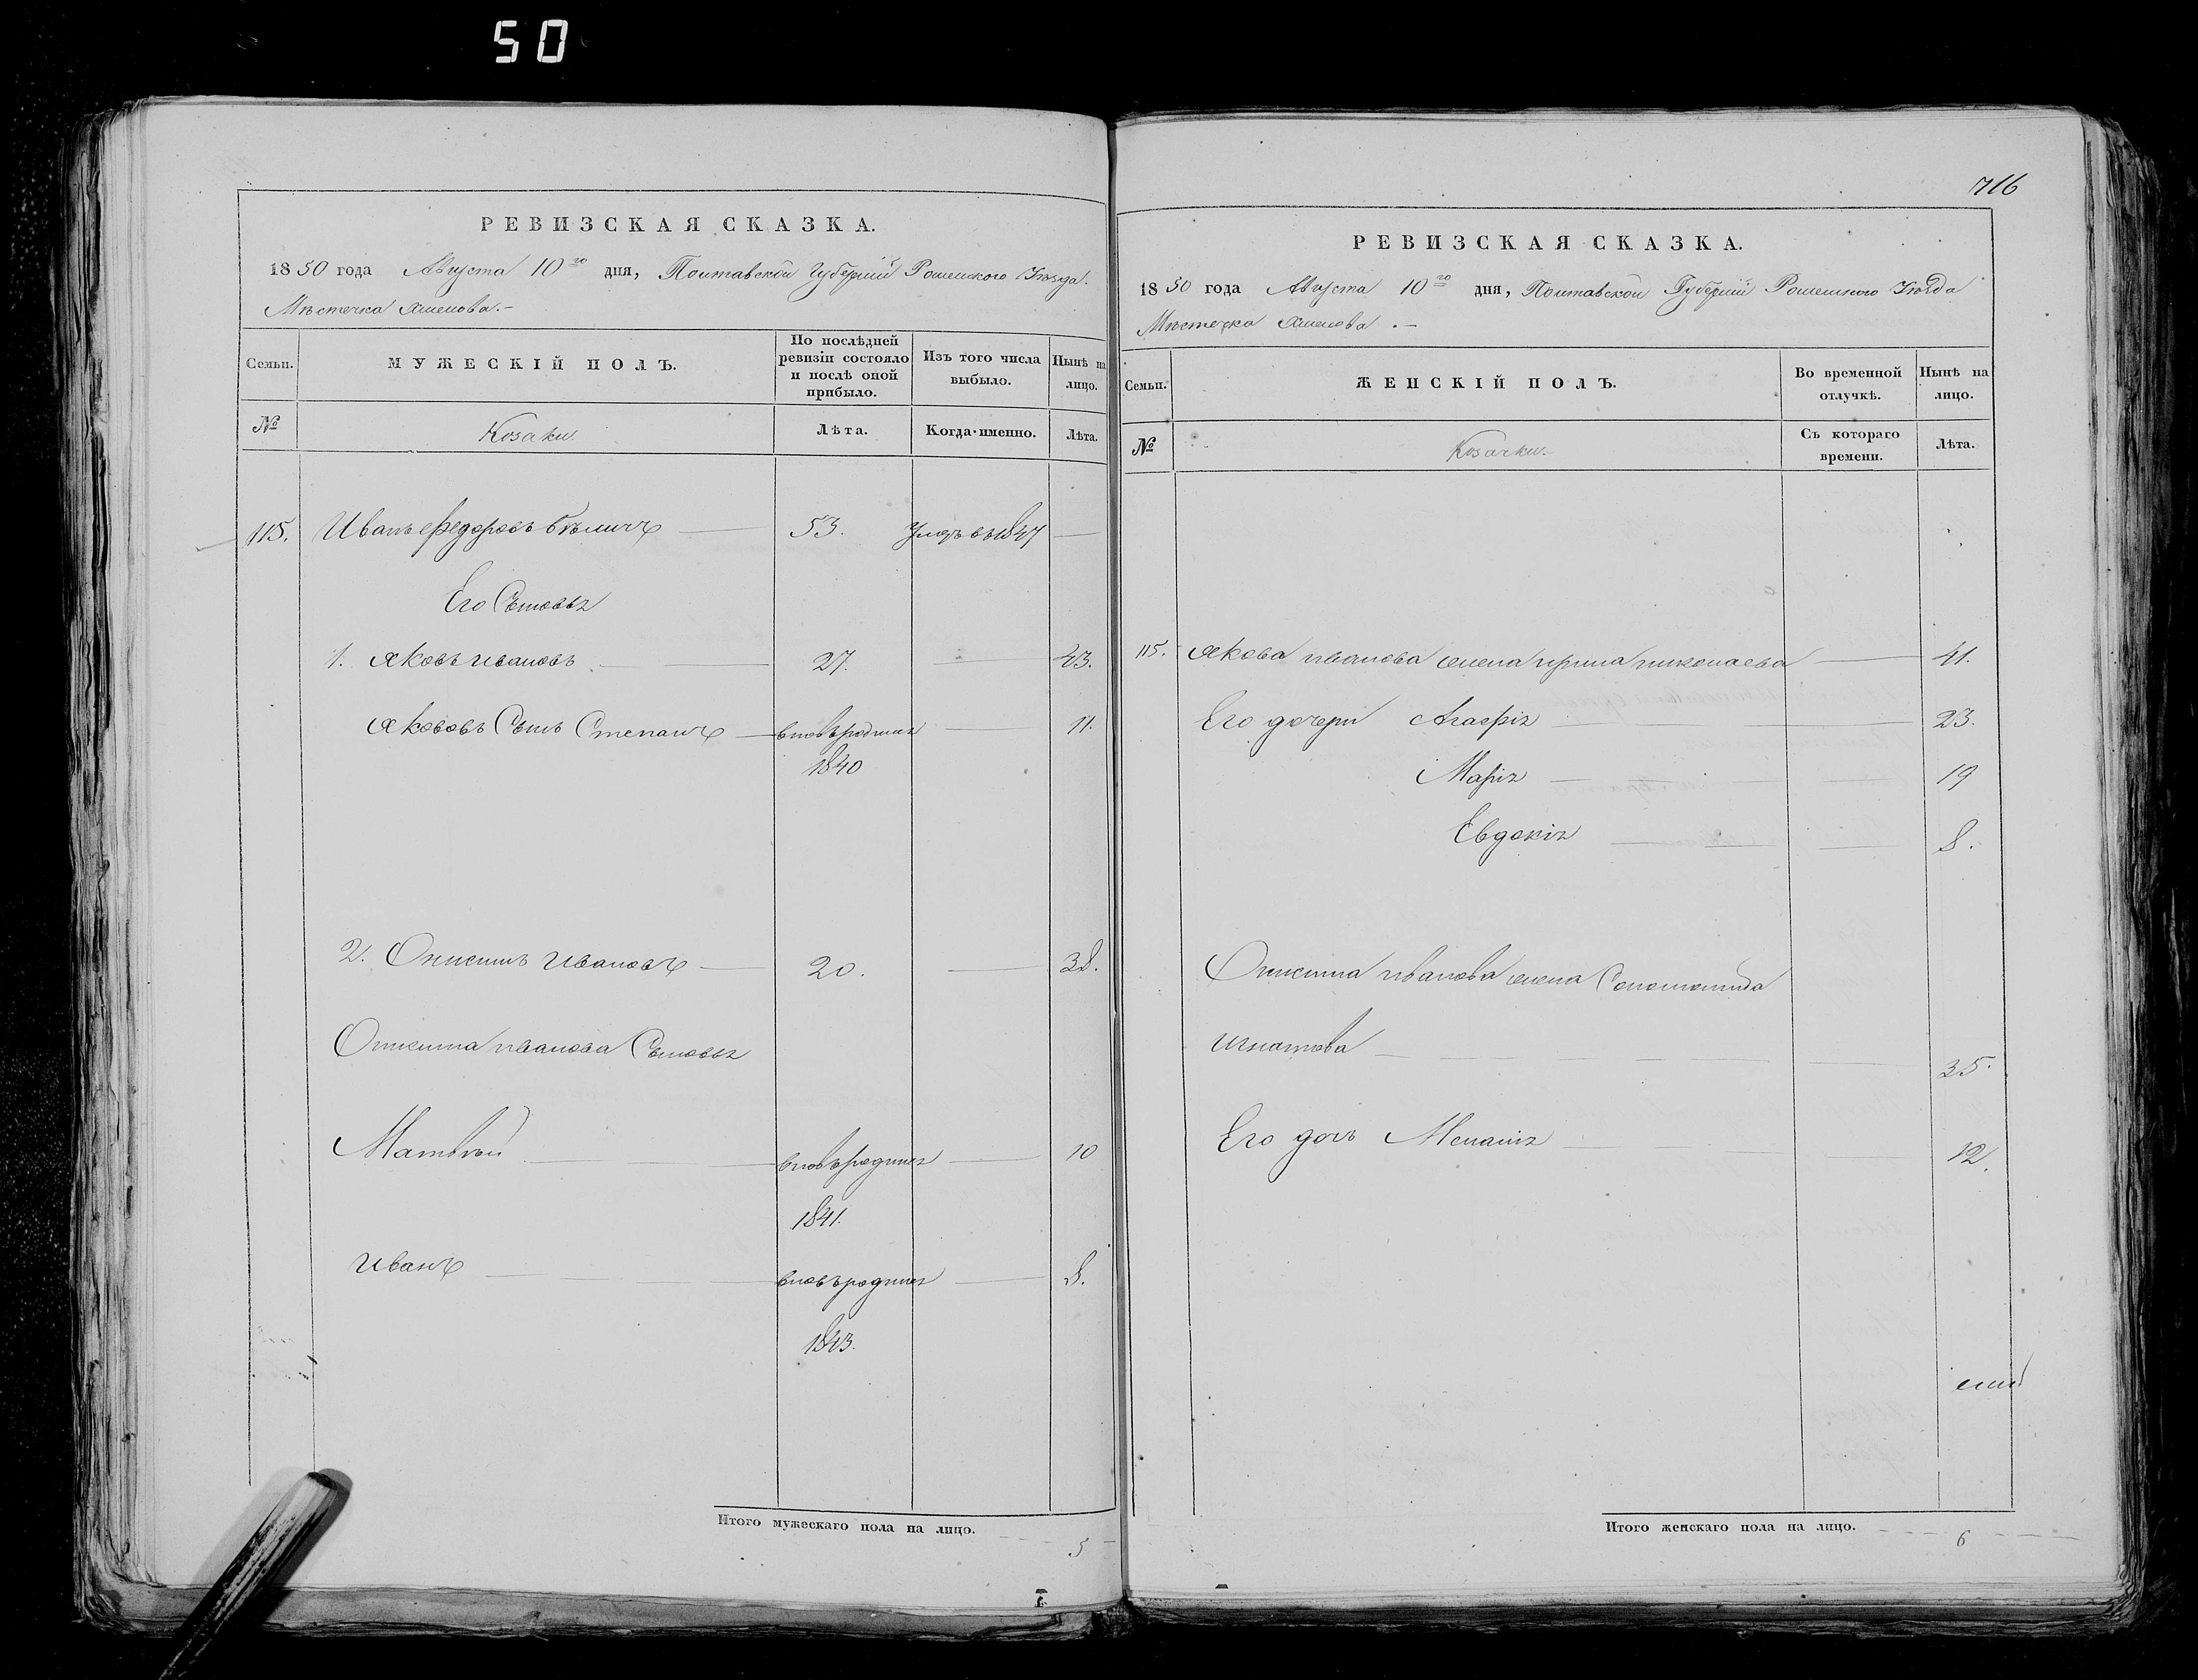 50
РЕВИЗСКАЯ СКАЗКА.
1850 года Августа 10го дня, Полтавской Губерніи Роменского Уѣзда.
Мѣстечка
Семьи. МУЖЕСКІЙ ПОЛЪ. По послѣдней ревизіи состояло и послѣ оной прибыло. Изъ того числа выбыло. Нынѣ на лицо.
№ Козаки. Лѣта. Когда именно. Лѣта.
115. Иванъ Федоровъ Бѣличъ 53. Умеръ въ 1847
Его Сыновья
1. Яковъ Ивановъ 27. 43.
Якововъ Сынъ Степанъ вновьродился 11.
1840
2. Онисимъ Ивановъ 20. 38.
Онисима Иванова Сыновья
Матвѣй вновьродился 10
1841.
Иванъ вновьродился 8.
1843.
Итого мужескаго пола на лицо. 5
716
РЕВИЗСКАЯ СКАЗКА.
1850 года Августа 10го дня, Полтавской Губерніи Роменского Уѣзда
Мѣстечка
Семьи. ЖЕНСКІЙ ПОЛЪ. Во временной отлучкѣ. Нынѣ на лицо.
№ Козачки. Съ котораго времени. Лѣта.
115. Якова Иванова жена Ирина Николаева 41.
Его дочери Агафія 23.
Марія 19
Евдокія 8.
Онисима Иванова жена Соломонида
Игнатова 35.
Его дочь Меланія 12.
Итого женскаго пола на лицо. 6